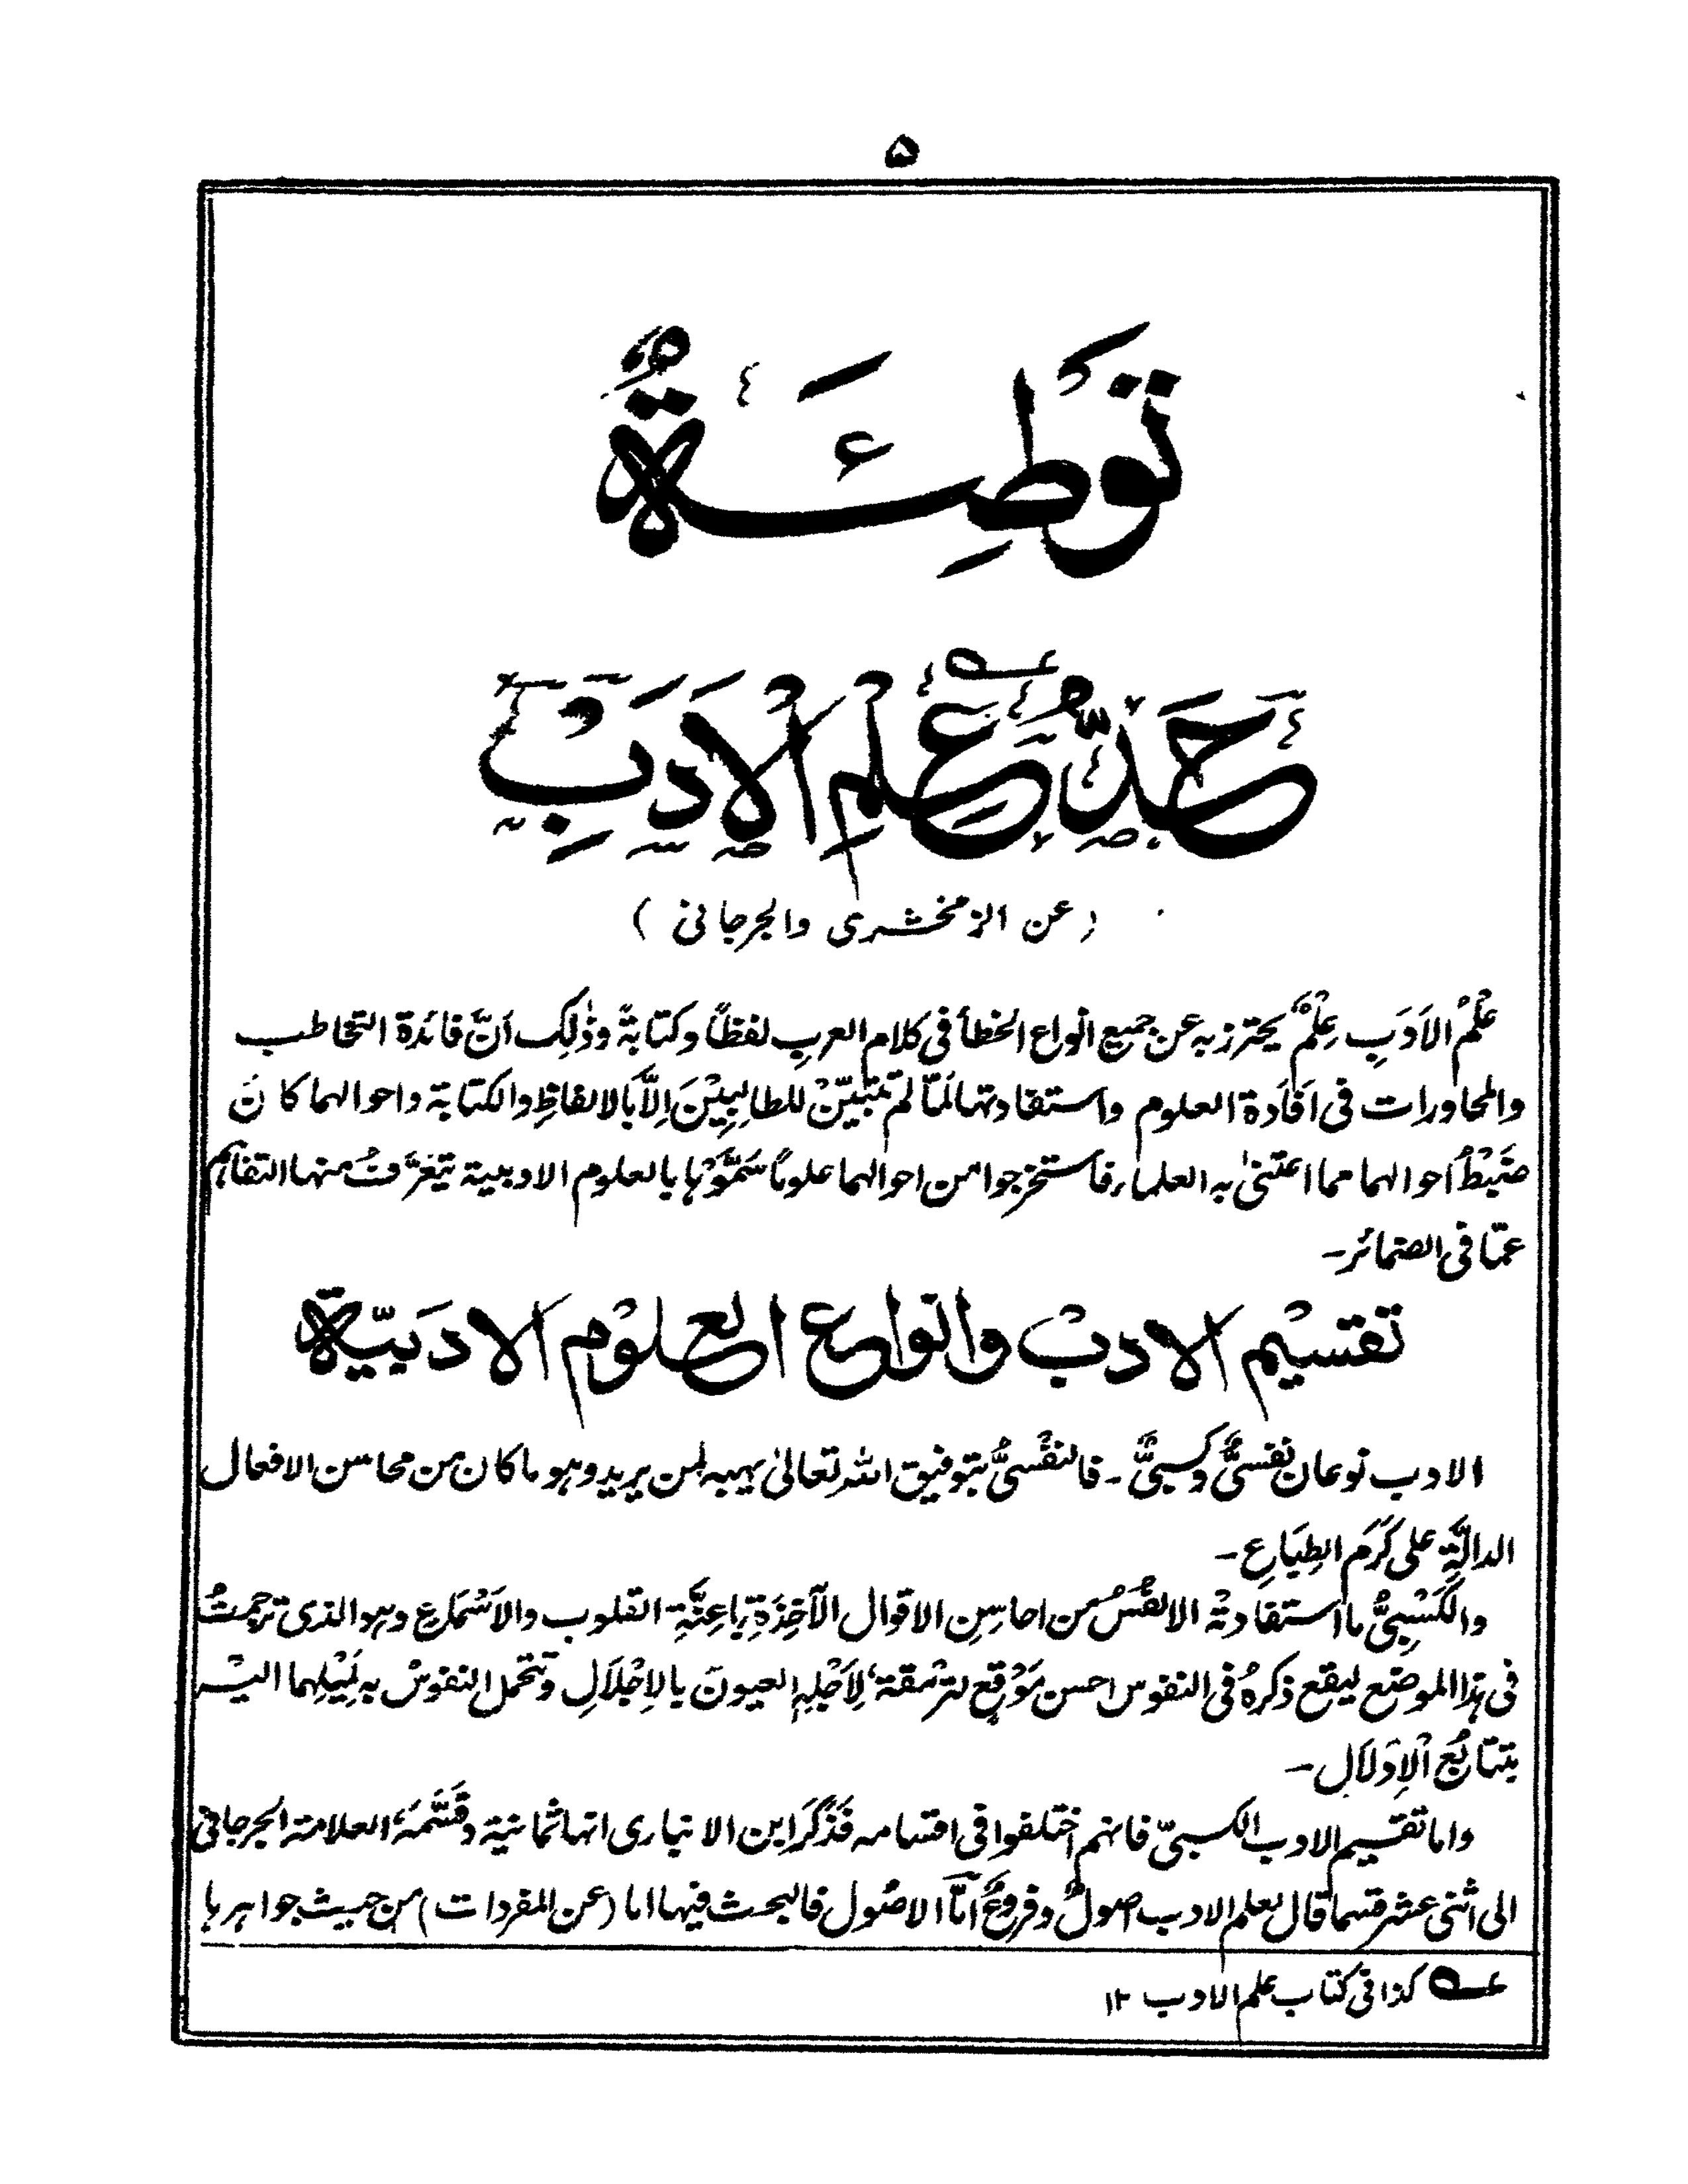 ۵
تَوْطِئَةٌ
حَدُّ عِلْمِ الْاَدَبِ
(عن الزمخشری والجرجانی)
عِلْمُ الاَدَبِ عِلْمٌ یحترز به عن جمیع انواع الخطأ فی کلام العربِ لفظاً وکتابةً وذٰلِک اَنَّ فائدة التخاطب
والمحاورات فی اَفَادَة العلوم واستفادتها لَمّا لم تتبیّنْ للطالِبِیْنَ اِلَّا بالالفاظِ والکتابة واحوالهما کانَ
ضَبْطُ احوالهما مما اعتنیٰ به العلماء فاستخرجوا من احوالهما علوماً سَمَّوْها بالعلوم الادبیة یتعَرَّفُ منها التفاهم
عمّا فی الضمائر۔
تقسیم الادب وانواع العلوم الادبیّة
الادب نوعان نفسیٌّ وکسبیٌّ۔ فالنفْسیُّ بتوفیق اللّٰه تعالیٰ یهبه لمن یرید وهو ما کان من محاسن الافعال
الدالَّةِ علی کَرَم الطِبَاعِ۔
والکَسْبِیُّ ما استفادتْه الانفُسُ من احاسِنِ الاقوال الآخِذَةِ باَعِنَّةِ القلوب والاَسْماعِ وهو الذی ترجمتُ
فی هٰذا الموضع لیقع ذکرهُ فی النفوس احسن مَوْقِع لترمقة، لِاَجْلِهِ العیون بالاِجْلَالِ وتتحمل النفوسُ به لِمَیْلِهما الیہ
بتتابُع الْاِدْلَالِ۔
واما تقسیم الادب الکسبیّ فانهم اختلفوا فی اقسامه فَذَکَرَ ابن الانباری انها ثمانیة وقَسَّمَهُ العلامة الجرجانی
الی اثنی عشر قسما قال لعلم الادب اصولٌ وفروعٌ اَمّا الاصُول فالبحث فیها اما (عن المفردات) من حیث جواهرها
عه کذا فی کتاب علم الادب ۱۲